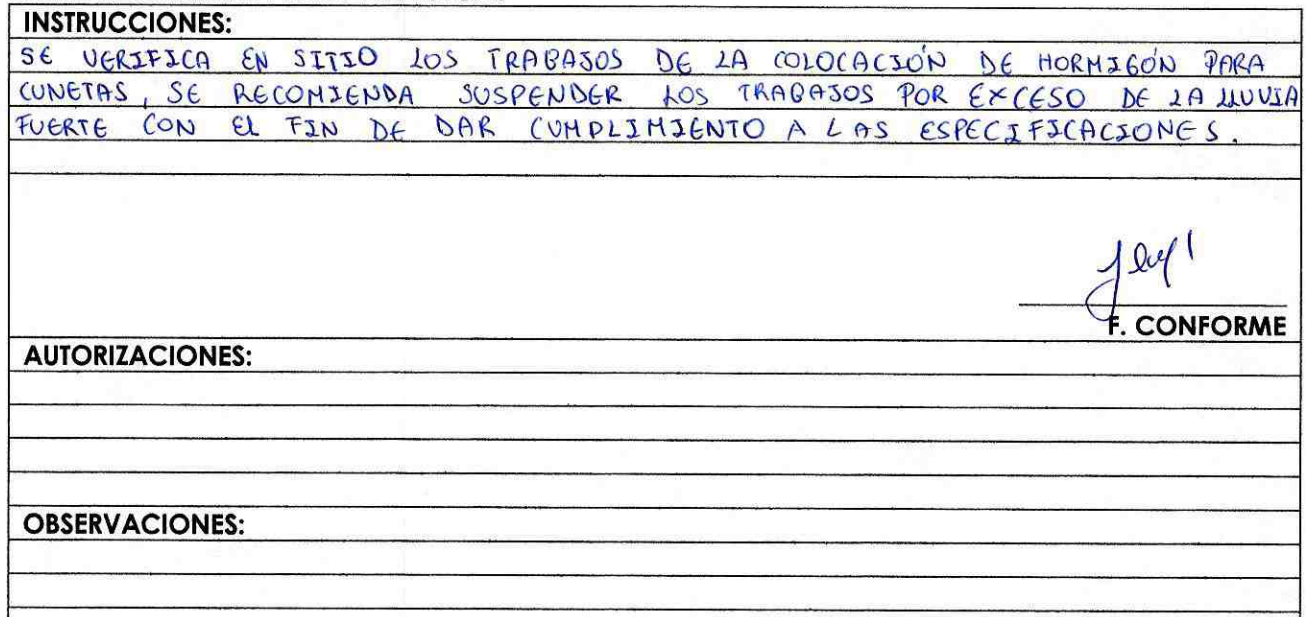 INSTRUCCIONES:
SE VERIFICA EN SITIO LOS TRABAJOS DE LA COLOCACIÓN DE HORMIGÓN PARA
CUNETAS, SE RECOMIENDA SUSPENDER LOS TRABAJOS POR EXCESO DE LA LLUVIA
FUERTE CON EL FIN DE DAR CUMPLIMIENTO A LAS ESPECIFICACIONES.
F. CONFORME
AUTORIZACIONES:
OBSERVACIONES: